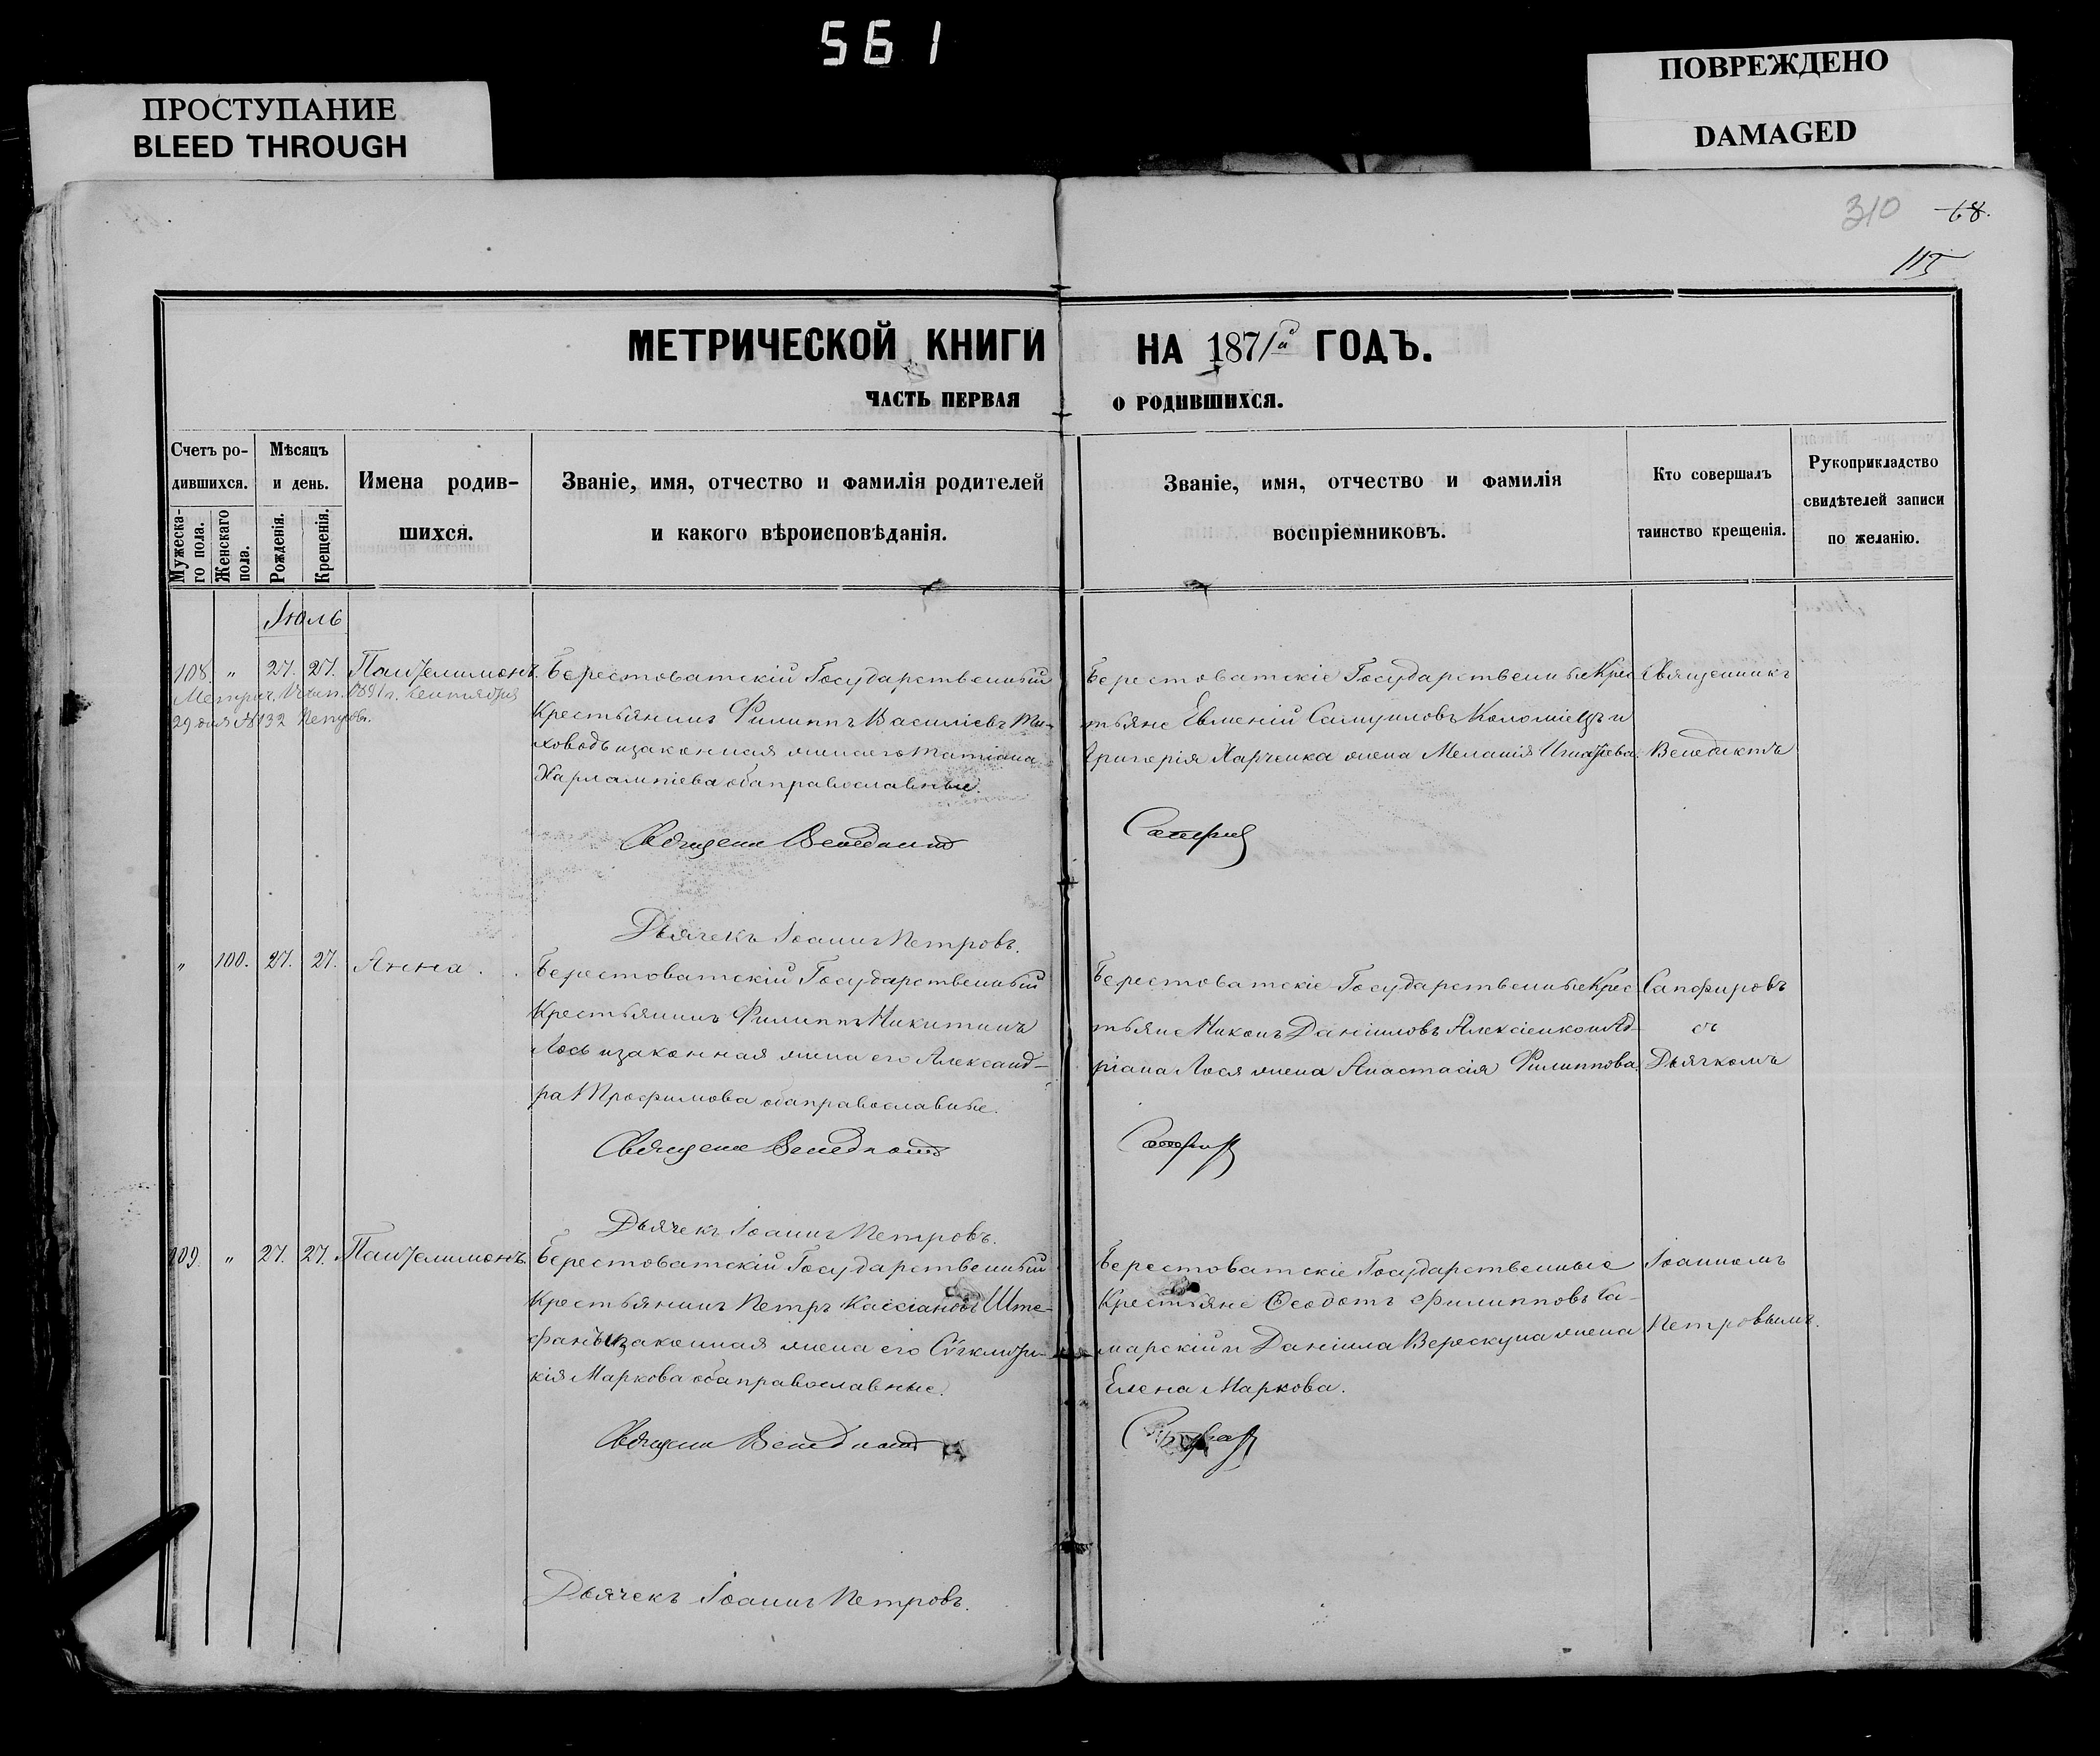 561
ПРОСТУПАНИЕ
BLEED THROUGH
ПОВРЕЖДЕНО
DAMAGED
310 68.
115
МЕТРИЧЕСКОЙ КНИГИ НА 1871й ГОДЪ.
ЧАСТЬ ПЕРВАЯ О РОДИВШИХСЯ.
Счетъ ро-
дившихся.
Мужеска-
го пола.
Женскаго
пола.
Мѣсяцъ
и день.
Рожденія.
Крещенія.
Имена родив-
шихся.
Званіе, имя, отчество и фамилія родителей
и какого вѣроисповѣданія.
Званіе, имя, отчество и фамилія
воспріемниковъ.
Кто совершалъ
таинство крещенія.
Рукоприкладство
свидѣтелей записи
по желанію.
Іюль
108. " 27. 27. Пантелимонъ.
Метрич. 1891г. Сентября
29 дня №132 Петровъ.
Берестоватскій Государственный
Крестьянинъ Филиппъ Василіевъ
и законная жена его Татіана
Харлампіева оба православные.
Священн Венедиктъ
Дьячекъ Іоаннъ Петровъ.
Берестоватскіе Государственные Крес
тьяне Евменій Самуиловъ Коломіецъ и
Григорія Харченка жена Меланія Игнатіева.
Сапфир
Священникъ
Венедиктъ
" 100. 27. 27. Анна.
Берестоватскій Государственный
Крестьянинъ Филиппъ Никитинъ
Лось и законная жена его Александ-
ра Трофимова оба православные.
Священ Венедиктъ
Дьячекъ Іоаннъ Петровъ.
Берестоватскіе Государственные Крес
тьяне Никонъ Даніиловъ Алексіенко и Ад-
ріана Лося жена Анастасія Филиппова.
Сапфир
Сапфировъ
съ
Дьячкомъ
109. " 27. 27. Пантелимонъ.
Берестоватскій Государственный
Крестьянинъ Петръ Кассіановъ Ште-
фанъ и законная жена его Сѵнклити-
кія Маркова оба православные.
Священн Венедиктъ
Дьячекъ Іоаннъ Петровъ.
Берестоватскіе Государственные
Крестьяне Ѳеодотъ Филипповъ Са-
марскій и Даніила Верескуна жена
Елена Маркова.
Сапфир
Іоанномъ
Петровымъ.